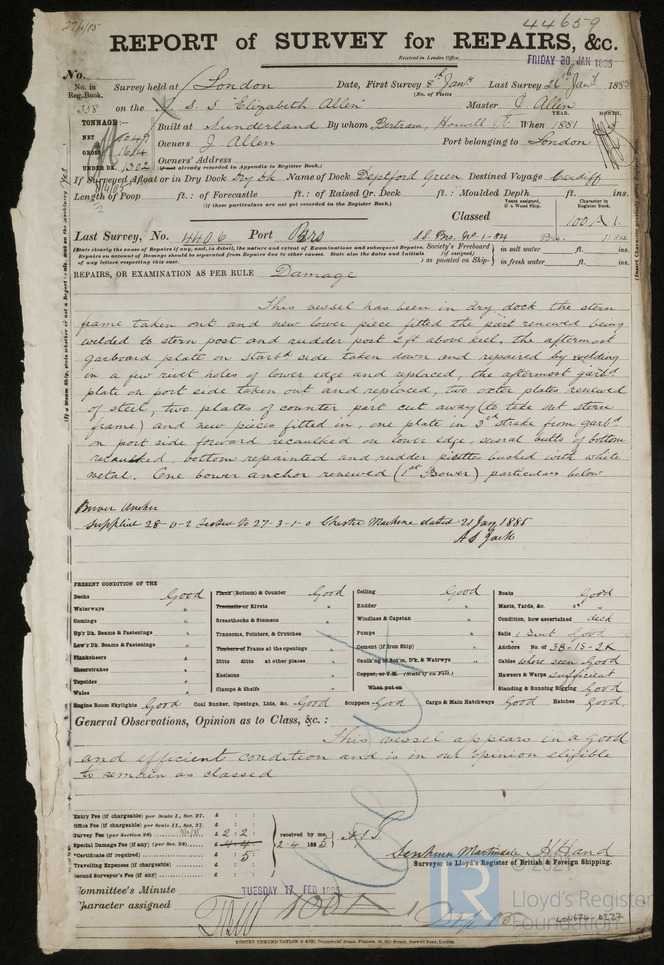 44659
REPORT of SURVEY for REPAIRS, &c.
Received in London Office.
FRIDAY 30 JAN 1885
No.
No. in Reg. Book. Survey held at London Date, First Survey 8th Jany Last Survey 26th Jany 1885
(No. of Visits)
358 on the S. S. "Elizabeth Allen" Master J Allen
TONNAGE:— Built at Sunderland By whom Bertram, Haswell When 1881
YEAR. MONTH.
NET
GROSS Owners J Allen Port belonging to London
UNDER DK. 1302 Owners' Address
(if not already recorded in Appendix to Register Book.)
If Surveyed Afloat or in Dry Dock Dry Dk Name of Dock Deptford Green Destined Voyage Cardiff
Length of Poop ft.: of Forecastle ft.: of Raised Qr. Deck ft.: Moulded Depth ft. ins.
(If these particulars are not yet recorded in the Register Book.)
Years assigned, if a Wood Ship. Character in Register Book.
Classed 100 A 1.
Last Survey, No. 4406 Port Brs
(State clearly the cause of Repairs if any, and, in detail, the nature and extent of Examinations and subsequent Repairs. Repairs on account of Damage should be separated from Repairs due to other causes. State also the dates and Initials of any letters respecting this case.
Society's Freeboard (if assigned) as painted on Ship
in salt water, ft. ins.
in fresh water, ft. ins.
REPAIRS, OR EXAMINATION AS PER RULE Damage
This vessel has been in dry dock the stern
frame taken out and new lower piece fitted the part renewed being
welded to stern post and rudder post 2ft above keel, the aftermost
garboard plate on starbd side taken down and repaired by welding
in a few rivet holes of lower edge and replaced, the aftermost garbd
plate on port side taken out and replaced, two oxter plates renewed
of steel, two plates of counter part cut away (to take out stern
frame) and new pieces fitted in, one plate in 3rd strake from garbd
on port side forward recaulked on lower edge, several butts of bottom
recaulked, bottom repainted and rudder pintles bushed with white
metal. One bower anchor renewed (1st Bower) particulars below
Bower Anchor
Supplied 28-0-2 Tested to 27-3-1-0 Chester Machine dated 21 Jany 1885
A S Jack
PRESENT CONDITION OF THE
Decks Good
Waterways "
Comings "
Up'r Dk. Beams & Fastenings "
Low'r Dk. Beams & Fastenings "
Planksheers
Sheerstrakes "
Topsides "
Wales "
Plank (Bottom) & Counter Good
Treenails or Rivets "
Breasthooks & Stemson
Transoms, Pointers, & Crutches
Timbers of Frame at the openings
Ditto ditto at other places
Keelsons
Clamps & Shelfs
Ceiling Good
Rudder "
Windlass & Capstan "
Pumps "
Cement (if Iron Ship) "
Caulk'ng of Bot'm, D'k, & Waterways "
Copper, or Y.M. (State if on Felt.)
When put on
Boats Good
Masts, Yards, &c. "
Condition, how ascertained deck
Sails 1 Suit Good
Anchors No. of 3B-1S-2K
Cables where seen Good
Hawsers & Warps sufficient
Standing & Running Rigging Good
Engine Room Skylights Good Coal Bunker, Openings, Lids, &c. Good Scuppers Good Cargo & Main Hatchways Good Hatches Good
General Observations, Opinion as to Class, &c. :
This vessel appears in a good
and efficient condition and is in our opinion eligible
to remain as classed
Entry Fee (if chargeable) per Scale I., Sec. 27. £ : :
Office Fee (if chargeable) per Scale II., Sec. 27. £ : :
Survey Fee (per Section 28) £ 2 : 2
Special Damage Fee (if any) (per Sec. 28) £ 4 : 4
Certificate (if required) £ : 5
Travelling Expenses (if chargeable) £ : :
Second Surveyor's Fee (if any) £ : :
received by me,
2.4.1885
Martindale A Hand
Surveyor to Lloyd's Register of British & Foreign Shipping.
Committee's Minute TUESDAY 17 FEB 1885
Character assigned 100 A 1
© 2021
LR Lloyd's Register
Foundation
LON674-0227